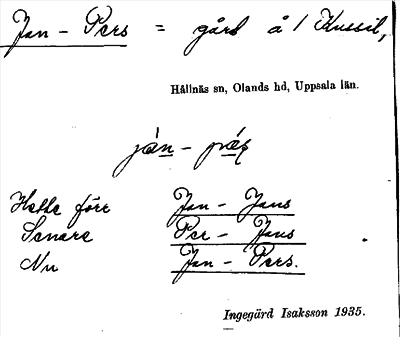 Jan - Pers = gård å
Hållnäs sn, Olands hd, Uppsala län.
Hette förr Jan - Jans
Senare Per - Jans
Nu Jan - Pers.
Ingegärd Isaksson 1935.